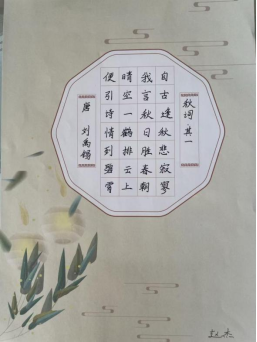 秋词 其一
自古逢秋悲寂寥
我言秋日胜春朝
晴空一鹤排云上
便引诗情到碧霄
唐 刘禹锡